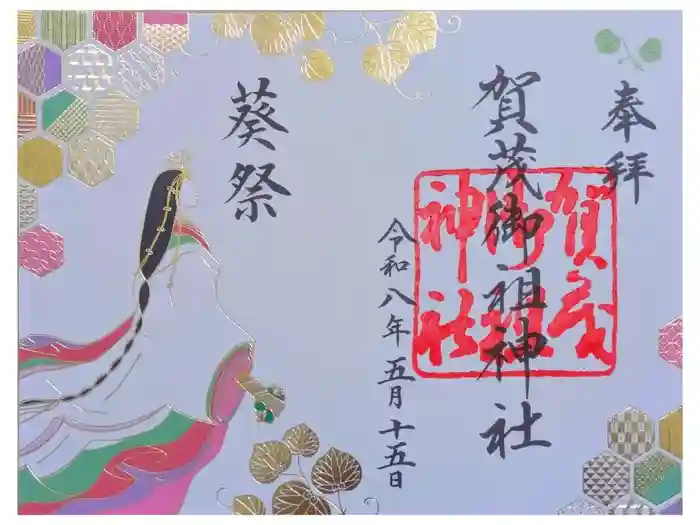 奉拝
賀茂御祖神社
賀茂
御祖
神社
令和八年五月十五日
葵祭